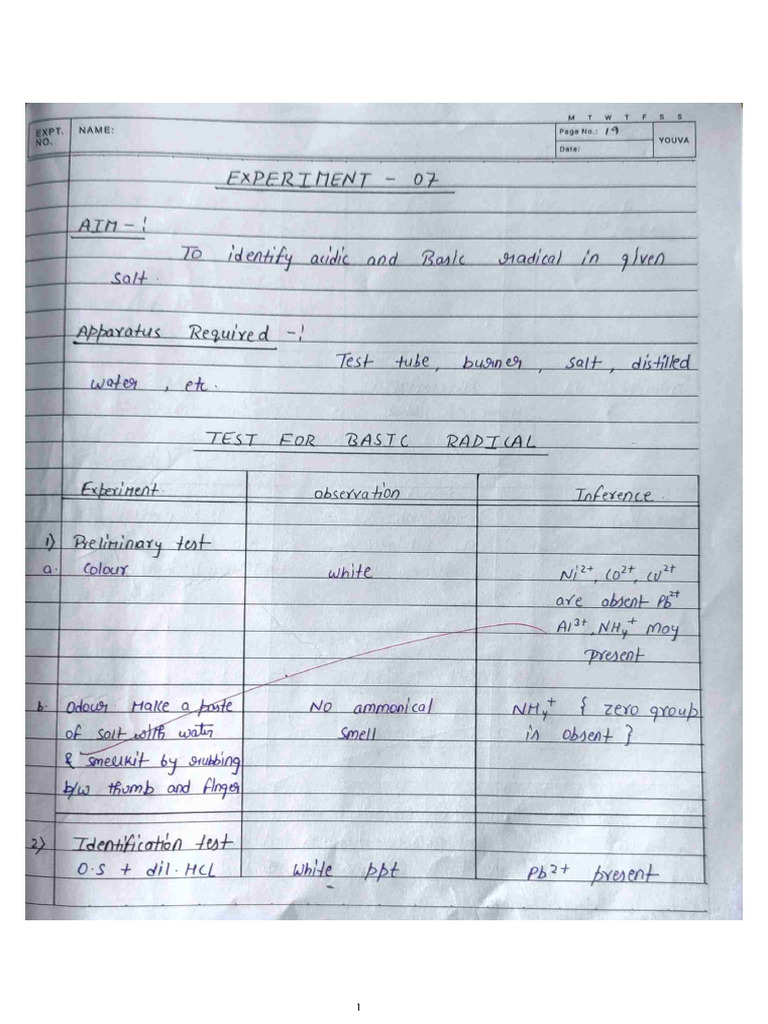 M T W T F S S
EXPT. NO.
NAME:
Page No.: 19
Date:
YOUVA
EXPERIMENT - 07
AIM -:
To identify acidic and Basic radical in given
salt.
Apparatus Required -:
Test tube, burner, salt, distilled
water, etc.
TEST FOR BASIC RADICAL
Experiment. observation Inference.
1) Preliminary test
a. colour white Ni2+, Co2+, Cu2+
are absent Pb2+
Al3+, NH4+ may
present
b. Odour. Make a paste No ammonical NH4+ { zero group
of salt with water smell is absent }
& smellkit by rubbing
b/w thumb and finger
2) Identification test
O.S + dil. HCL white ppt Pb2+ present
1